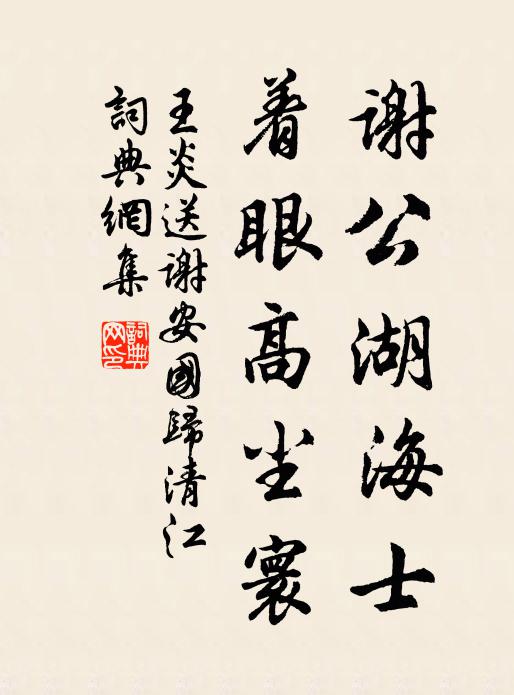 謝公湖海士
着眼高尘寰
王炎送谢安國歸清江
詞典網集
詞典網印